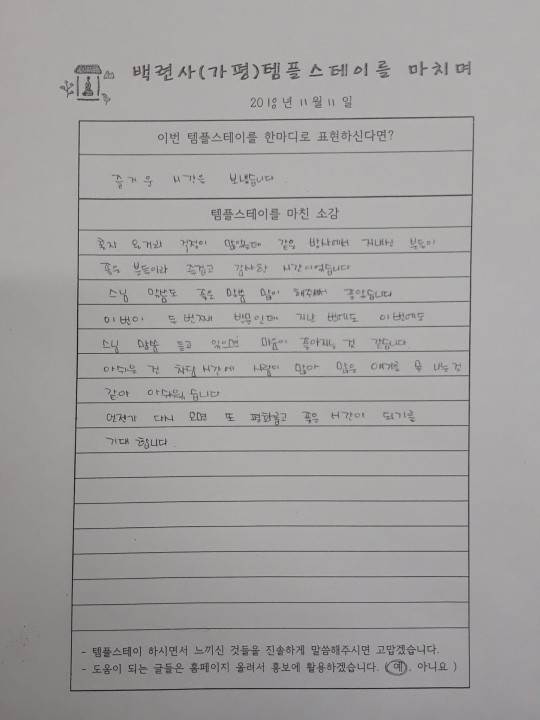 백련사(가평)템플스테이를 마치며
2018년 11월 11일
이번 템플스테이를 한마디로 표현하신다면?
즐거운 시간을 보냈습니다.
템플스테이를 마친 소감
혹시 걱정이 많았는데 같은 방사에서 지내신 분들이
좋은 분들이라 즐겁고 감사한 시간이었습니다
스님 말씀도 좋은 말씀 많이 해주셔서 좋았습니다
이번이 두번째 방문인데 지난 번에도 이번에도
스님 말씀 듣고 있으면 마음이 좋아지는 것 같습니다.
아쉬운 건 차담 시간에 사람이 많아 많은 얘기를 못 나눈것
같아 아쉬웠습니다
언젠가 다시 오면 또 평화롭고 좋은 시간이 되기를
기대 합니다.
- 템플스테이 하시면서 느끼신 것들을 진솔하게 말씀해주시면 고맙겠습니다.
- 도움이 되는 글들은 홈페이지 올려서 홍보에 활용하겠습니다. ( 예, 아니요 )